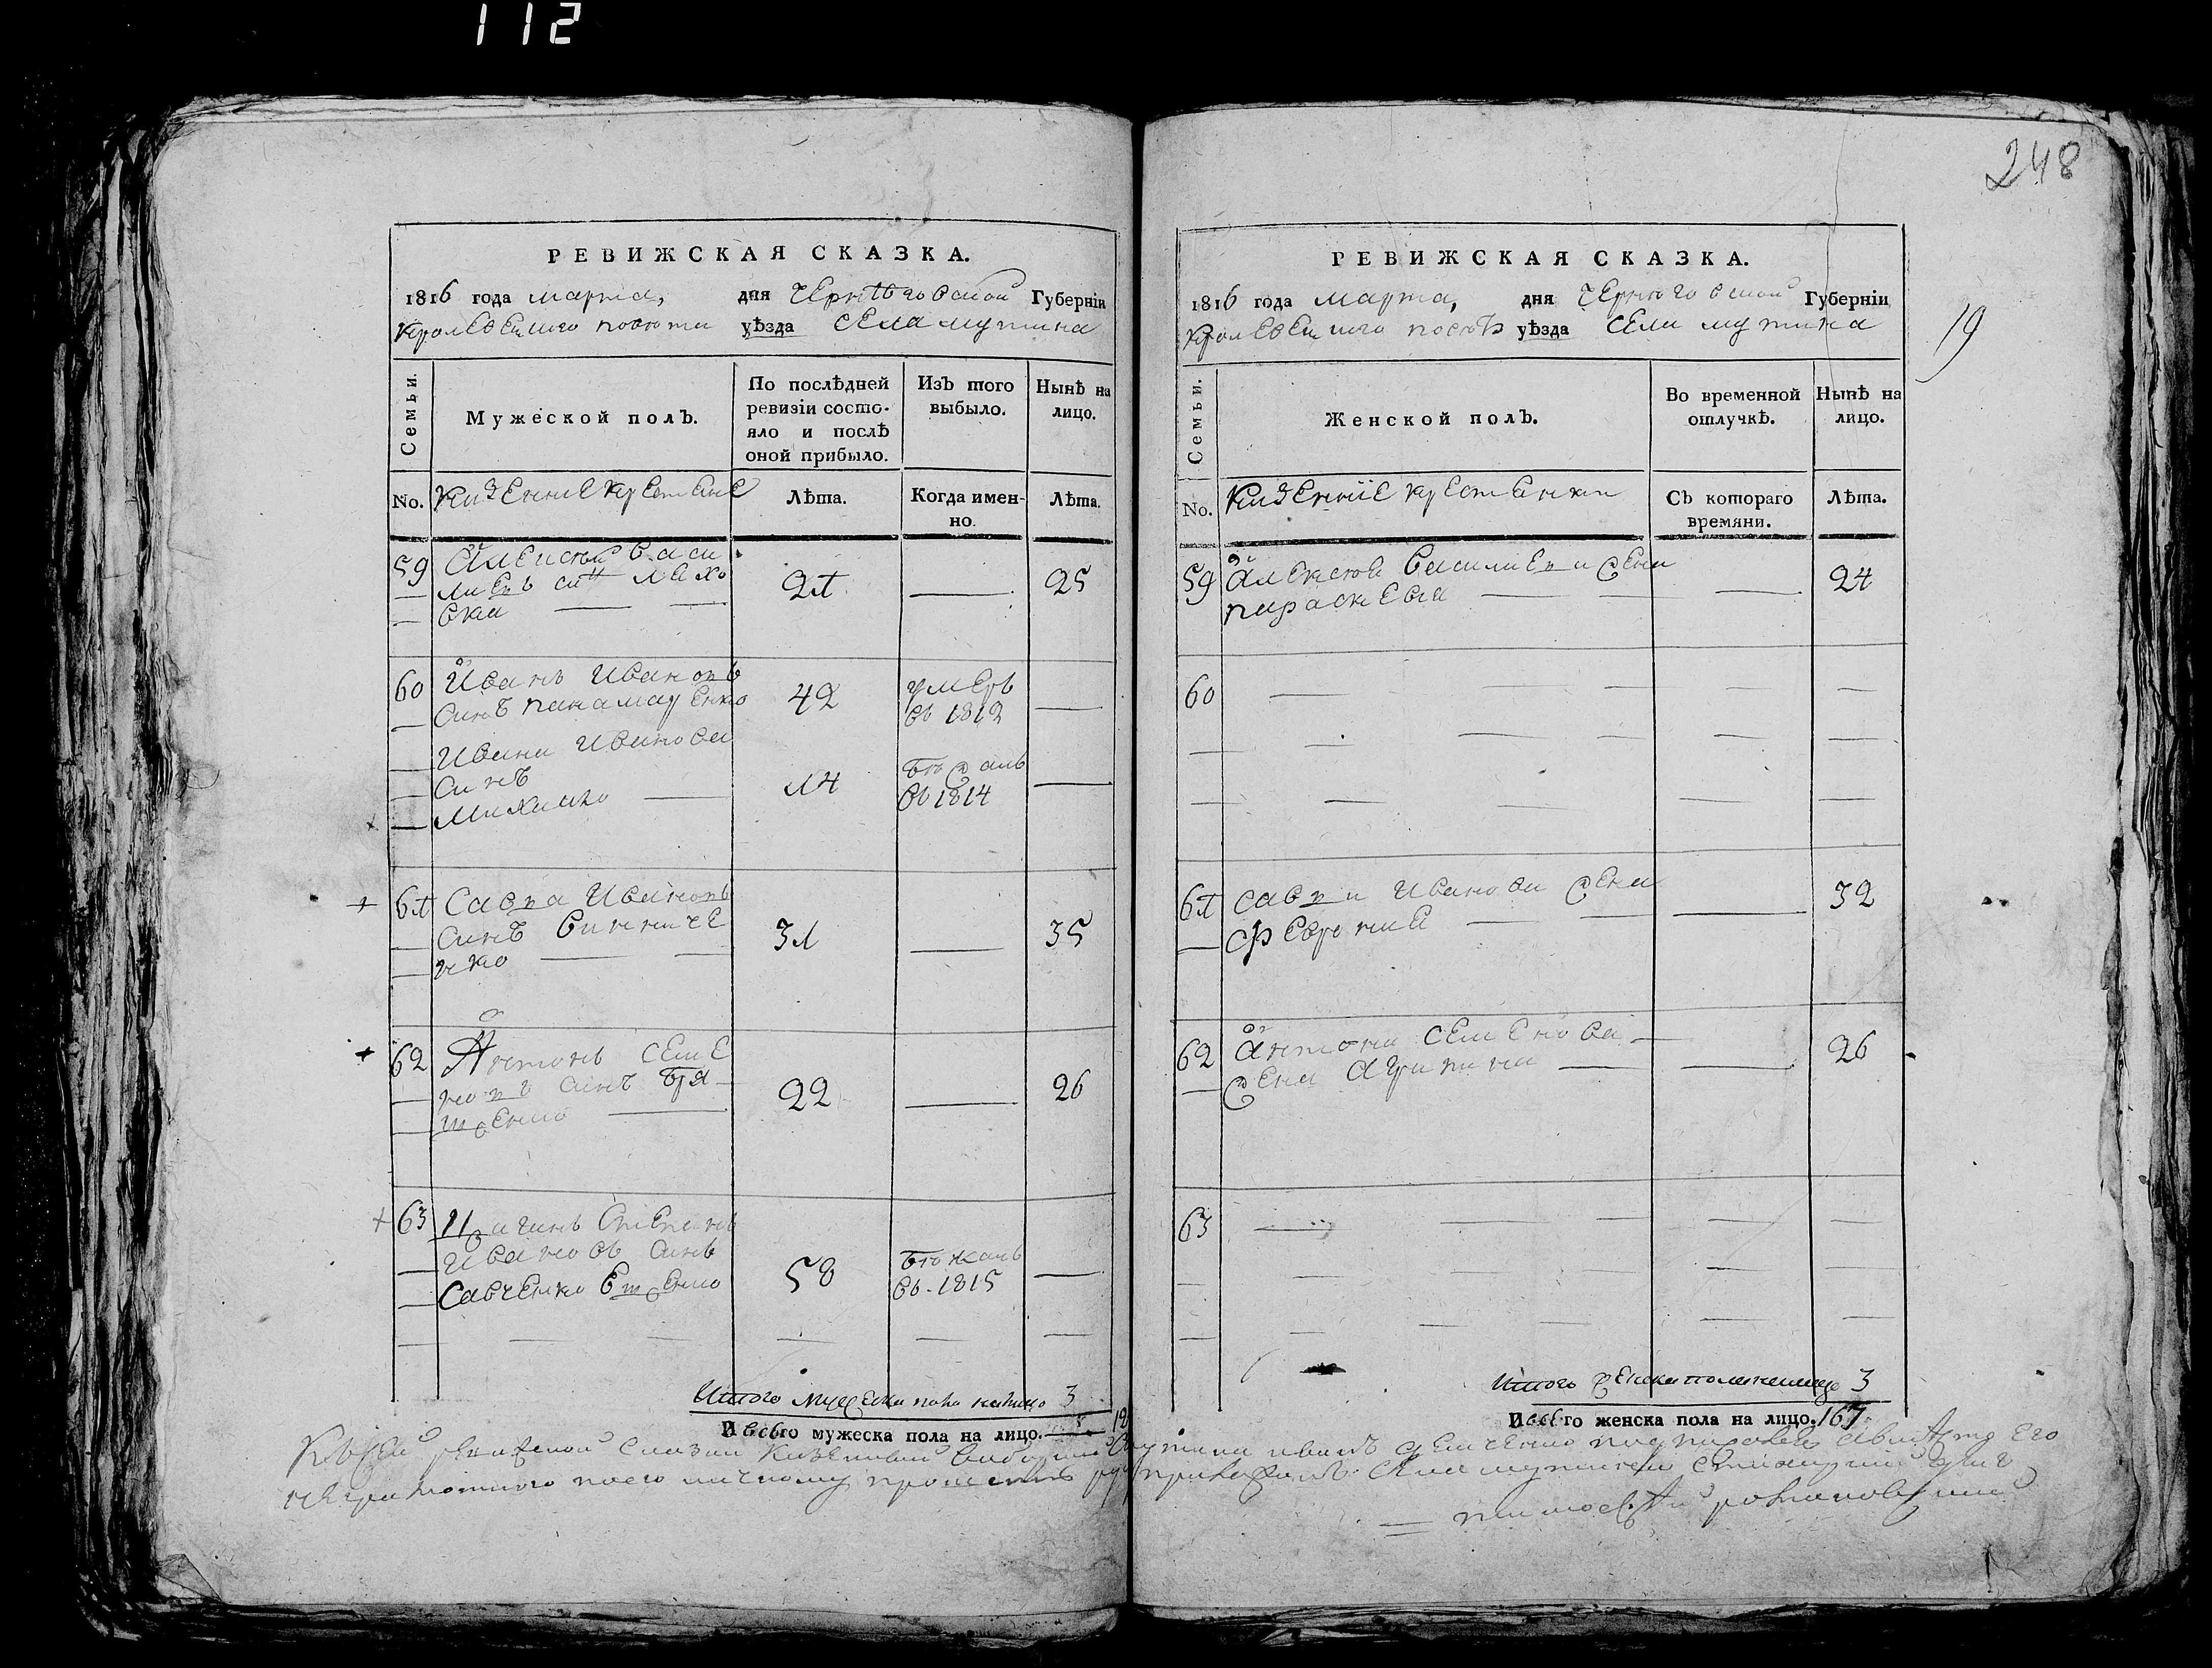 112
248
19
РЕВИЖСКАЯ СКАЗКА.
1816 года марта, дня Черниговской Губерніи
Кролевецкого повѣта уѣзда села мутина
Семьи.
Мужеской полъ.
По послѣдней
ревизіи состо-
яло и послѣ
оной прибыло.
Изъ того
выбыло.
Нынѣ на
лицо.
No.
Казенние крестяне
Лѣта.
Когда имен-
но.
Лѣта.
59 Алексѣй васи
лиевъ синъ ляхо
вка 21 25
60 Иванъ Ивановъ
синъ панамаренко 42 умеръ
въ 1812
Ивана Иванова
синъ
Михайло 14 бѣжалъ
въ 1814
61 Савва Ивановъ
синъ винниче
нко 31 35
62 Антонъ семе
новъ синъ
22 26
63 Степанъ
Ивановъ синъ
Савченко 58 бѣжалъ
въ. 1815
Итого мужеска пола налицо 3
И всего мужеска пола на лицо.
РЕВИЖСКАЯ СКАЗКА.
1816 года марта, дня Черниговской Губерніи
Кролевецкого повѣт уѣзда села мутина
Семьи.
Женской полъ.
Во временной
отлучкѣ.
Нынѣ на
лицо.
No.
Казенніе крестянки
Съ котораго
времяни.
Лѣта.
59 Алексѣя василиева жена
параскевия 24
60
61 савви Иванова жена 32
феврония
62 антона семенова 26
жена агрипина
63
Итого женска пола налицо 3
И всего женска пола на лицо. 167
К сей ревижской сказки казенный виборний Иванъ Демченко
неграмотного по его личному прошению